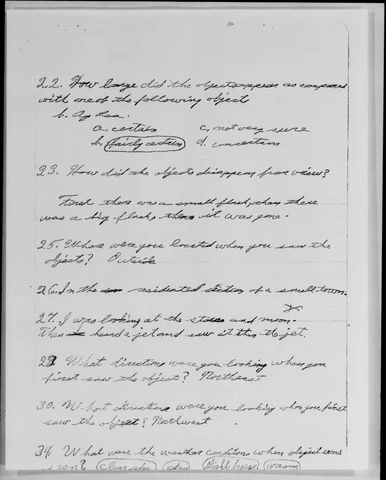 22. How large did the object appear as compared
with one of the following object
b. 
a. certain c. not very sure
b. fairly certain d. uncertain
23. How did the object disappear from view?
First there was a small flash, then there
was a big flash, then it was gone.
25. Where were you located when you saw the
object? Outside
26. In the residential section of a small town.
27. I was looking at the stars and moon.
Then heard a jet and saw it the jet.
29. What direction were you looking when you
first saw the object? Northeast
30. What direction were you looking when you first
saw the object? Northwest
34. What were the weather conditions when object was
seen? clear sky warm